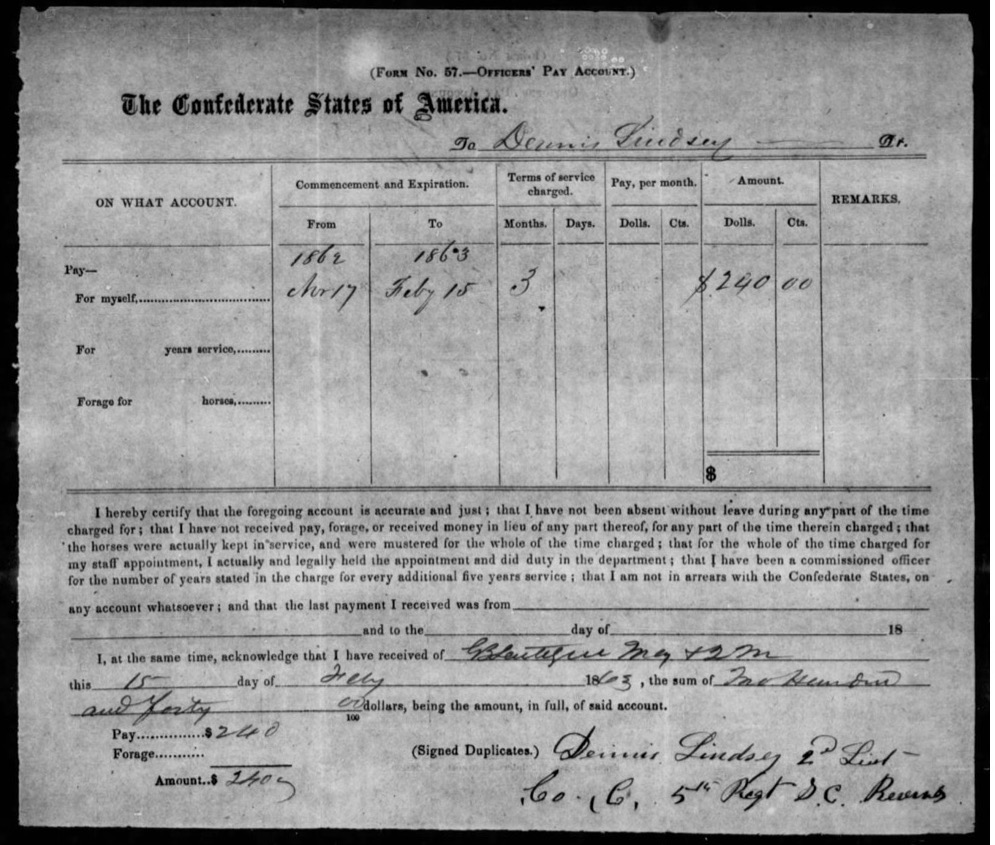 (FORM NO. 57.—OFFICERS' PAY ACCOUNT.)
The Confederate States of America.
To Dennis Lindsey Dr.
ON WHAT ACCOUNT.
Commencement and Expiration.
Terms of service charged.
Pay, per month.
Amount.
REMARKS.
From To Months. Days. Dolls. Cts. Dolls. Cts.
1862 1863
Pay—
For myself, Nov 17 Feby 15 3 $240 00
For years service,
Forage for horses,
$
I hereby certify that the foregoing account is accurate and just; that I have not been absent without leave during any part of the time
charged for; that I have not received pay, forage, or received money in lieu of any part thereof, for any part of the time therein charged; that
the horses were actually kept in service, and were mustered for the whole of the time charged; that for the whole of the time charged for
my staff appointment, I actually and legally held the appointment and did duty in the department; that I have been a commissioned officer
for the number of years stated in the charge for every additional five years service; that I am not in arrears with the Confederate States, on
any account whatsoever; and that the last payment I received was from
and to the day of 18
I, at the same time, acknowledge that I have received of
this 15 day of Feby 1863, the sum of Two Hundred
and forty 00/100 dollars, being the amount, in full, of said account.
Pay $240
Forage
Amount..$ 240
(Signed Duplicates.) Dennis Lindsey 2d Lieut
Co. C, 5th Regt S.C. Reserves